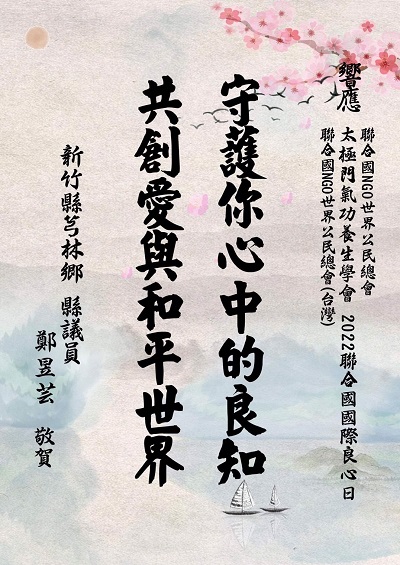 響應
聯合國NGO世界公民總會
太極門氣功養生學會 2022聯合國國際良心日
聯合國NGO世界公民總會(台灣)
守護你心中的良知
共創愛與和平世界
新竹縣芎林鄉 縣議員
鄭昱芸 敬賀